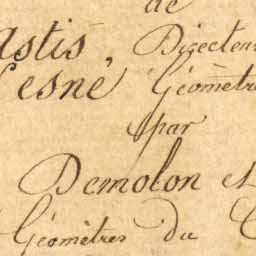 de
astis, Directeu
esné Géomètre
par
Demolon et
Géomètres du C